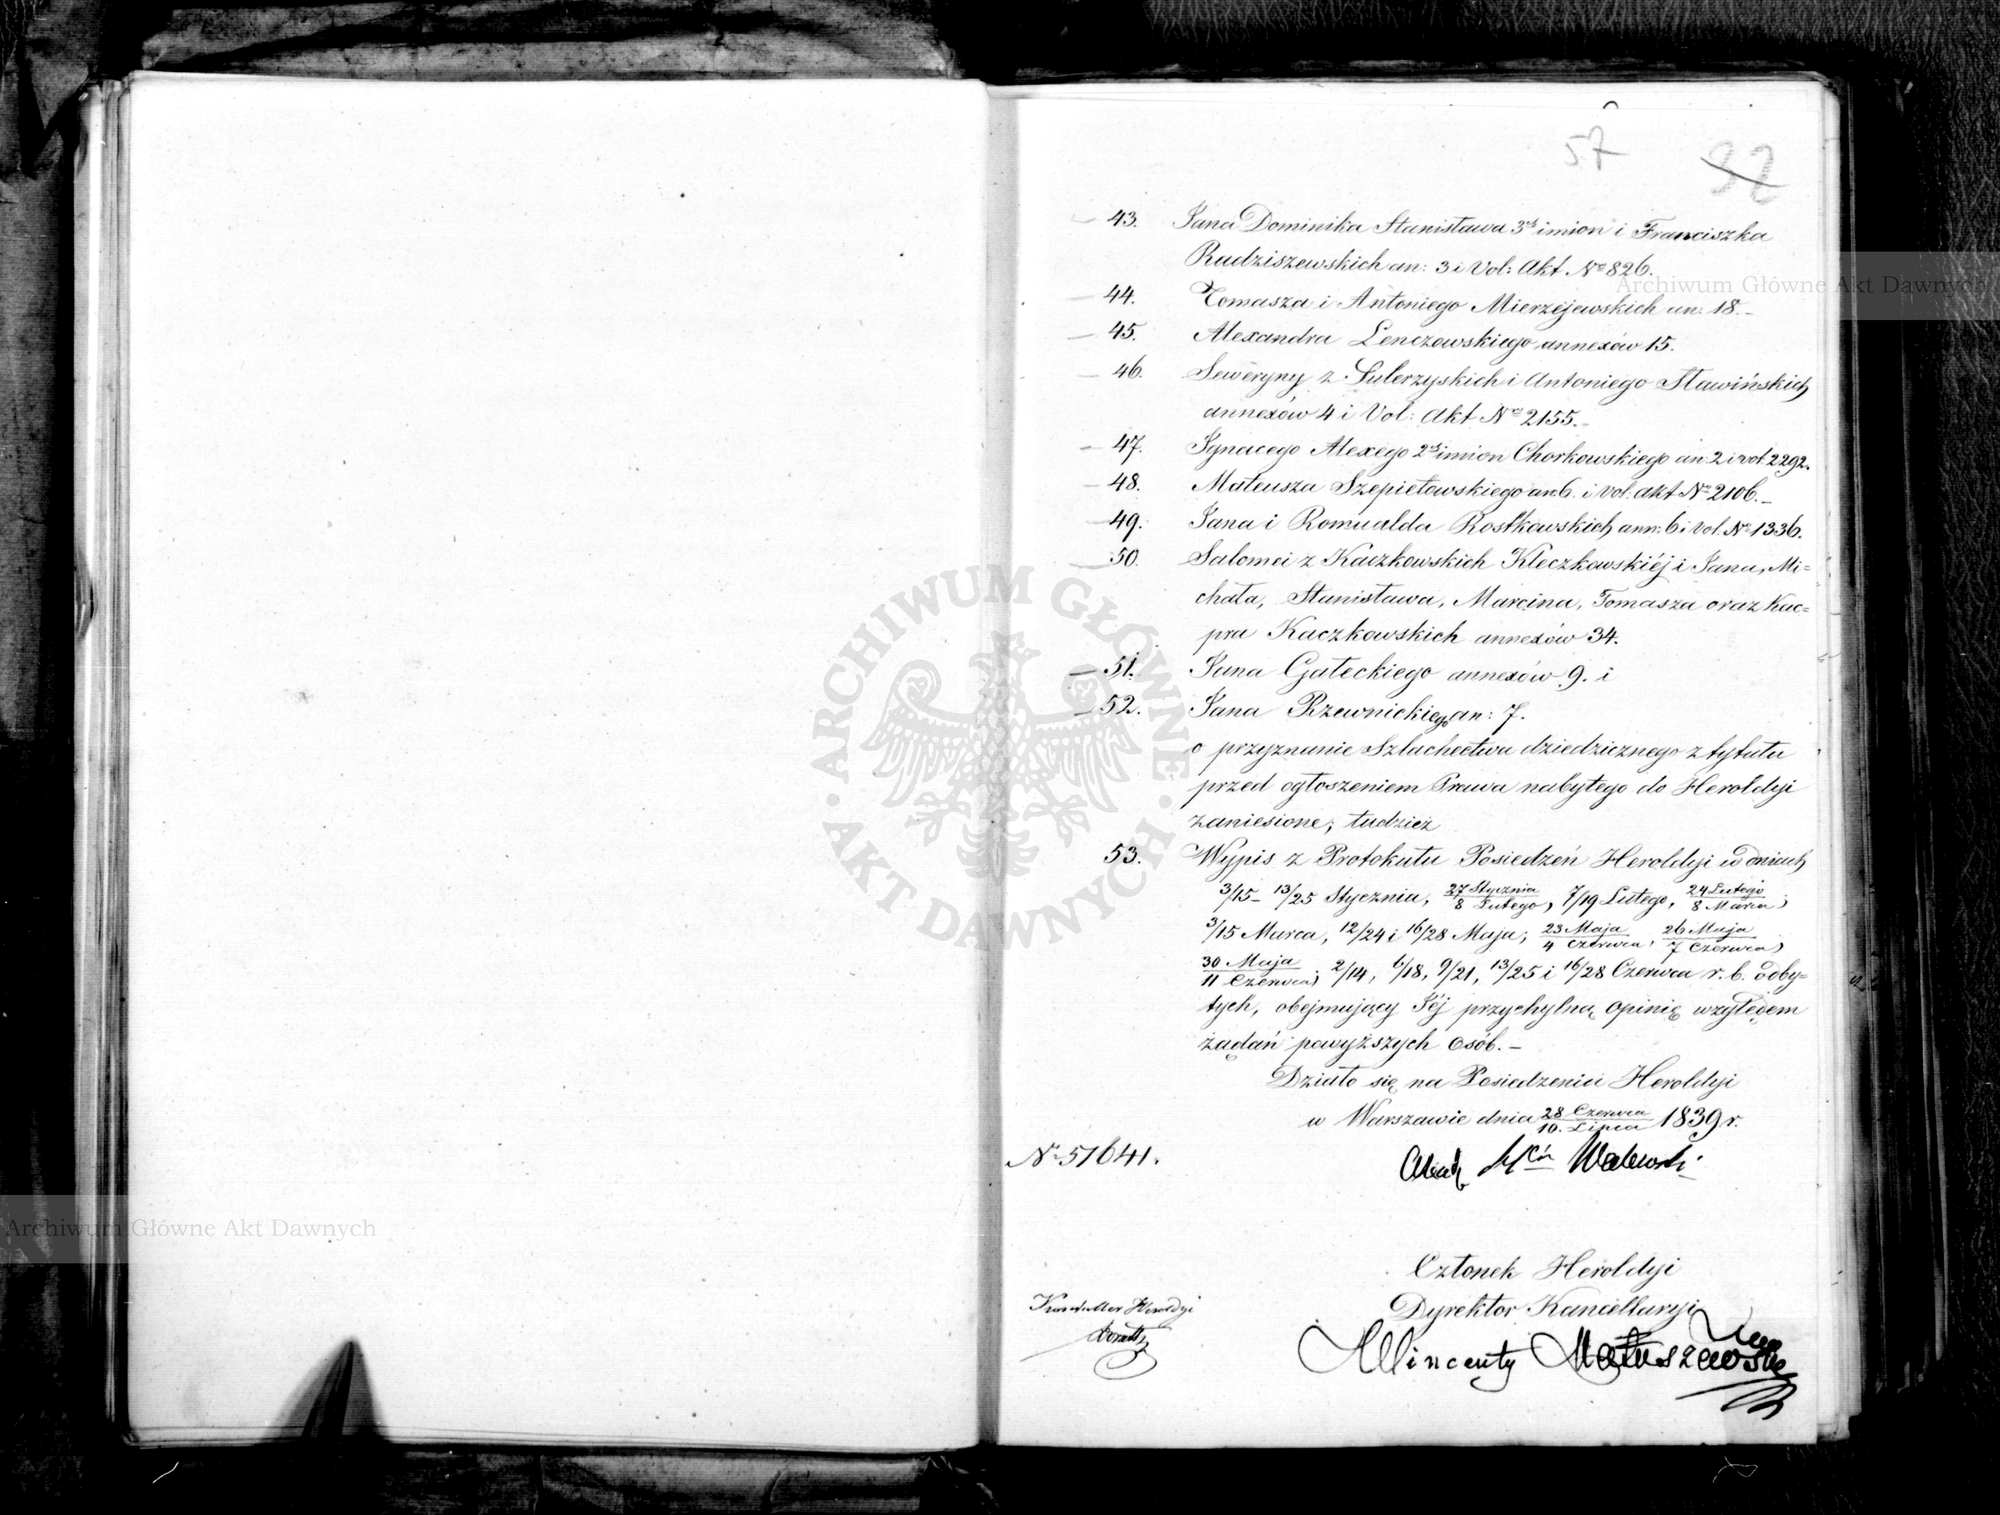 57 98
43. Jana Dominika Stanisława 3ch imion i Franciszka
Radziszewskich an: 3 i Vol: Akt No 826.
44. Tomasza i Antoniego Mierzejewskich an: 18.–
45. Alexandra Lenczowskiego annexów 15.
46. Seweryny z Sulerzyskich i Antoniego Sławińskich
annexów 4 i Vol: Akt No 2155.–
47. Ignacego Alexego 2ch imion Chorkowskiego an 2 i vol. 2292.
48. Mateusza Szepietowskiego an: 6. i Vol. akt No 2106.–
49. Jana i Romualda Rostkowskich ann: 6 i Vol. No 1336.
50. Salomei z Kaczkowskich Kleczkowskiéj i Jana, Mi=
chała, Stanisława, Marcina, Tomasza oraz Kac=
pra Kaczkowskich annexów 34.
51. Jana Gałeckiego annexów 9. i
52. Jana Rzewnickiego an: 7.
o przyznanie Szlachectwa dziedzicznego z tytułu
przed ogłoszeniem Prawa nabytego do Heroldyi
zaniesione; tudzież
53. Wypis z Protokułu Posiedzeń Heroldyi w dniach
3/15– 13/25 Stycznia, 27 Stycznia/8 Lutego, 7/19 Lutego, 24 Lutego/8 Marca;
3/15 Marca, 12/24 i 16/28 Maja; 23 Maja/4 Czerwca, 26 Maja/7 Czerwca,
30 Maja/11 Czerwca; 2/14, 6/18, 9/21, 13/25 i 16/28 Czerwca r. b. odby=
tych, obejmujący Jéj przychylną opinię względem
żądań powyższych osób.–
Działo się na Posiedzeniu Heroldyi
w Warszawie dnia 28 Czerwca/10. Lipca 1839 r.
No 51641.
Walewski
Członek Heroldyi
Dyrektor Kancellaryi
Wincenty Matuszewski
Heroldyi
Archiwum Główne Akt Dawnych
ARCHIWUM GŁÓWNE · AKT DAWNYCH ·
Archiwum Główne Akt Dawnych